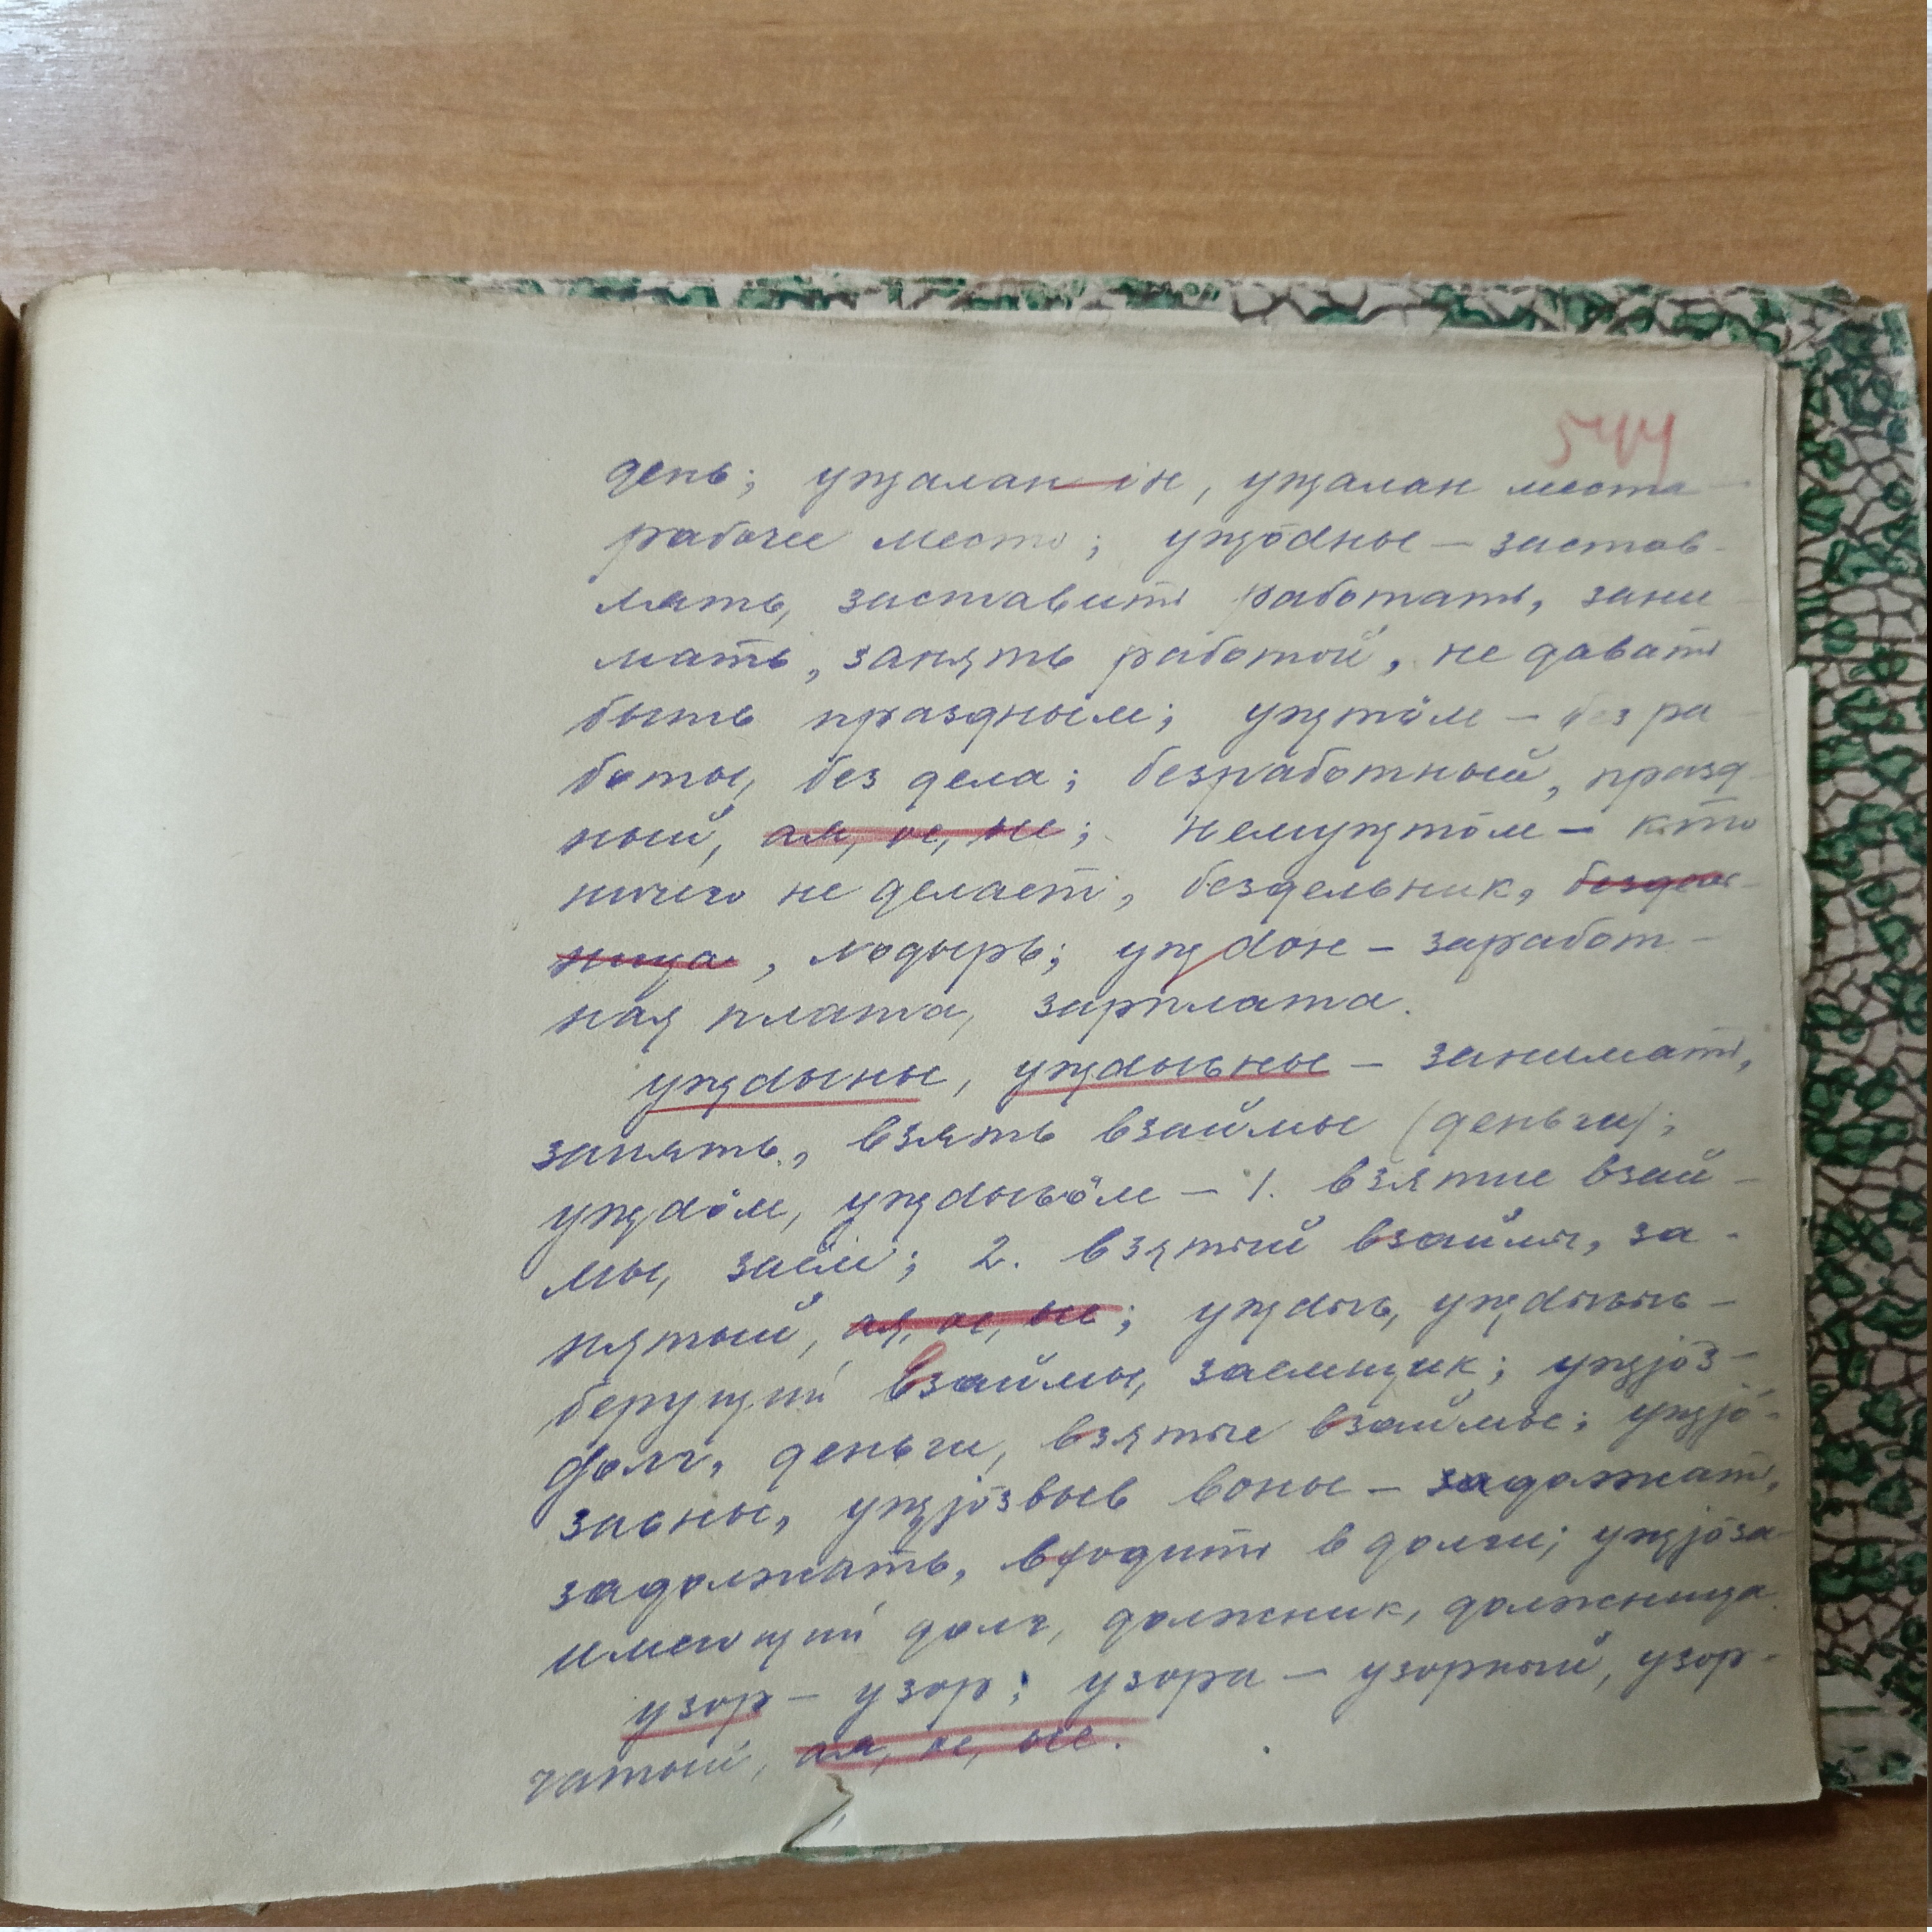 544
день; уҗалан-ін, уҗалан места-
рабочее место; уҗӧԁны – застав-
лять, заставить работать, зани-
мать, занять работой, не давать
быть праздным; уҗтӧм – без ра-
боты, без дела; безработный, празд-
ный, ая, ое, ые; немуҗтӧм – кто
ничего не делает, бездельник, бездель-
ница, лодырь; уҗԁон – заработ-
ная плата, зарплата.
уҗԁыны, уҗԁыԍны – занимать,
занять, взять взаймы (деньги);
уҗԁӧм, уҗԁыԍӧм – 1. взятие взай-
мы, заём; 2. взятый взаймы, за-
нятый, ая, ое, ые; уҗԁыԍ, уҗԁыԍыԍ –
берущий взаймы, заемщик; уҗјӧз –
долг, деньги, взятые взаймы; уҗјӧ-
заԍны, уҗјӧзвыв воны – задолжать,
задолжать, входить в долги; уҗјӧза-
имеющий долг, должник, должница.
узор – узор; узора – узорный, узор-
чатый, ая, ое, ые.